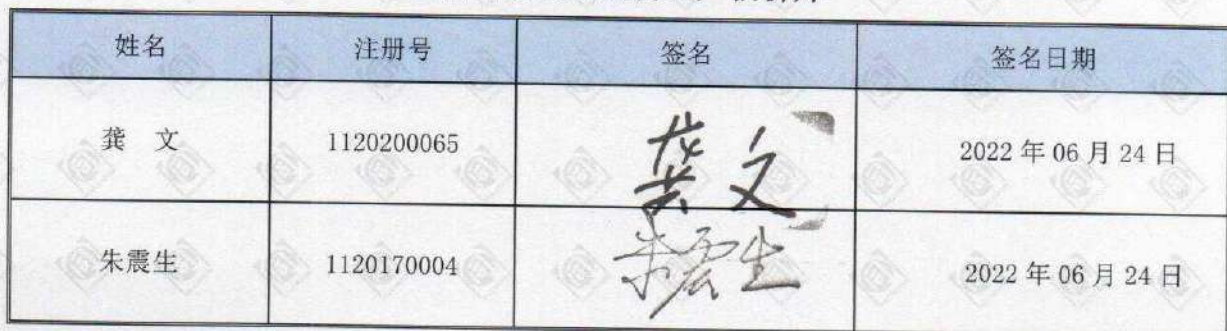 姓名 注册号 签名 签名日期
龚 文 1120200065 龚文 2022 年 06 月 24 日
朱震生 1120170004 朱震生 2022 年 06 月 24 日